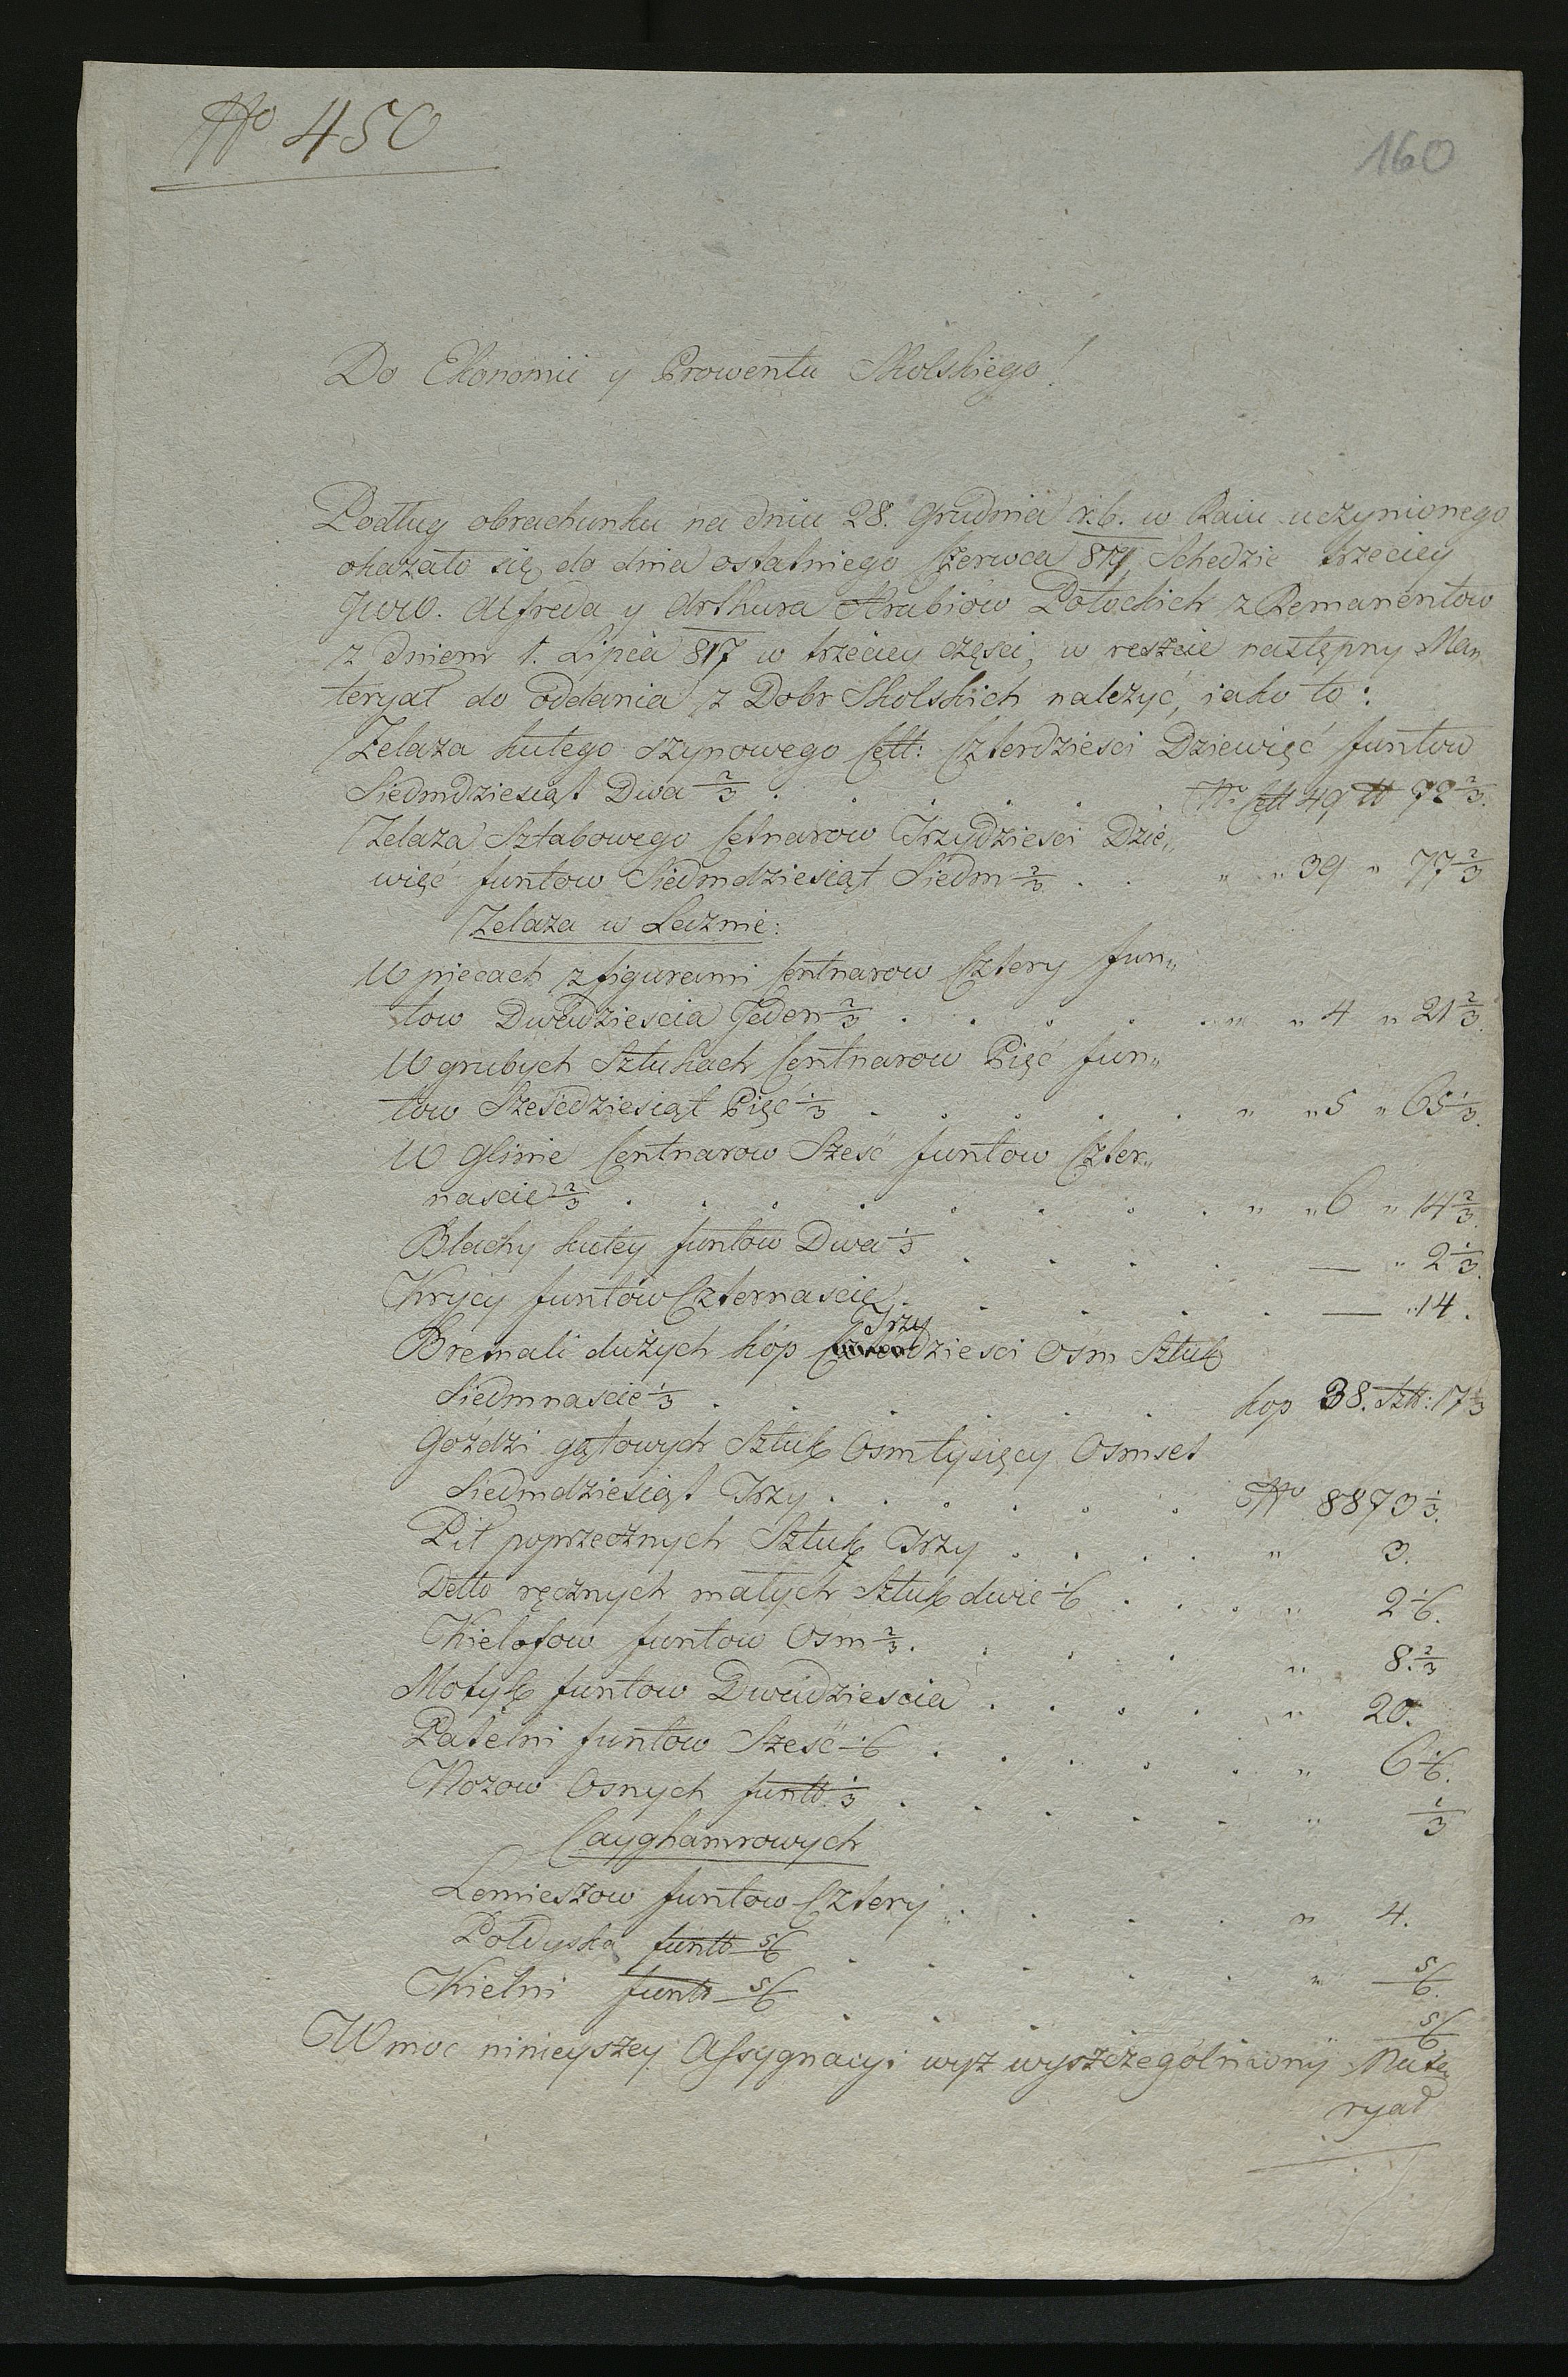 No 450
160
Do Ekonomii y Prowentu Skolskiego!
Podług obrachunku na dniu 28. Grudnia r.b. w Raiu uczynionego
okazało się do dnia ostatniego Czerwca 817 Schedzie trzeciey
JWW. Alfreda y Arthura Hrabiów Potockich z Remanentow
z dniem 1. Lipca 817 w trzeciey części, w reszcie następny Ma„
teryał do oddania z Dobr Skolskich należyć, iako to:
Zelaza kutego szynowego Ctt: Czterdziesci Dziewięć funtow
Siedmdziesiąt Dwa 2/3 . . . . . . No Ctt 49 tt 72 2/3.
Zelaza Sztabowego Cetnarow Trzydziesci Dzie„
więć funtow Siedmdziesiąt Siedm 2/3 . . " " 39 " 77 2/3
Zelaza w Leiznie:
W piecach z figurami Centnarow Cztery fun„
tow Dwudziescia Jeden 2/3 . . . . . " " 4 " 21 2/3.
W grubych Sztukach Centnarow Pięć fun„
tow Sześćdziesiąt Pięć 1/3 . . . . . " " 5 " 65 1/3.
W Glinie Centnarow Sześć funtow Czter„
nascie 2/3 . . . . . . . . " " 6 " 14 2/3.
Blachy kutey funtow Dwa 1/3 . . . . — " 2 1/3.
Krycy funtow Czternascie . . . . . — " 14.
Trzy
Bretnali dużych kóp dziesci Ośm Sztuk
Siedmnascie 1/3 . . . . . . kop 38. Szt: 17 1/3
Goździ gątowych Sztuk Osmtysięcy Osmset
Siedmdziesiąt Trzy . . . . . . No 8873 1/3.
Pił poprzecznych Sztuk Trzy . . . . " 3.
Detto ręcznych małych Sztuk dwie 1/6 . . . " 2 1/6.
Kielofow funtow Ośm 2/3 . . . . " 8. 2/3
Motyk funtow Dwudziescia . . . . " 20.
Patelni funtow Sześć 1/6 . . . . . " 6 1/6.
Nozow Osnych funtt 1/3 . . . . . " 1/3
Cayghamrowych
Lemieszow funtow Cztery . . . . " 4.
Połdyska funtt 5/6 . . . . . " 5/6.
Kielni funtt 5/6 . . . . . " 5/6
W moc ninieyszey Assygnacyi wyz wyszczególniony Mate„
ryał